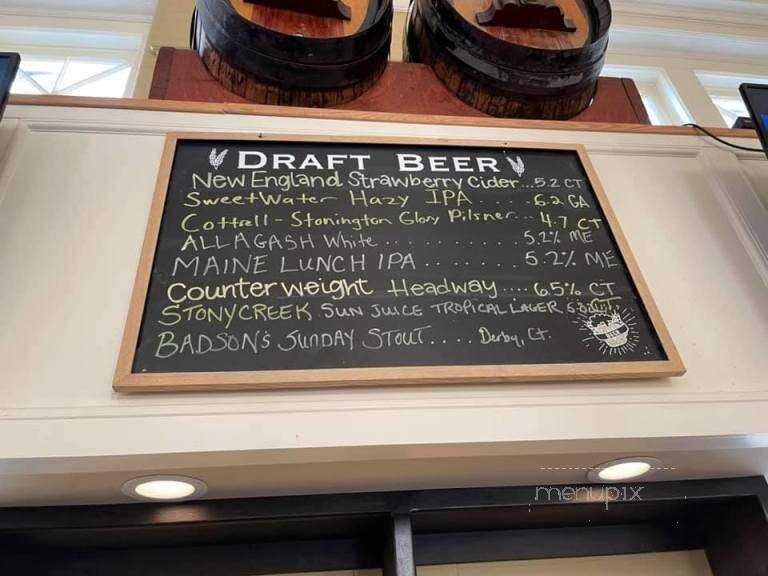 DRAFT BEER
New England Strawberry Cider...5.2 CT
SweetWater Hazy IPA.....6.2 GA
Cottrell-Stonington Glory Pilsner...4.7 CT
ALLAGASH White..........5.2% ME
MAINE LUNCH IPA.......5.2% ME
Counter weight Headway....6.5% CT
STONYCREEK SUN JUICE TROPICAL LAGER
BADSON'S SUNDAY STOUT....Derby, Ct.
menupix